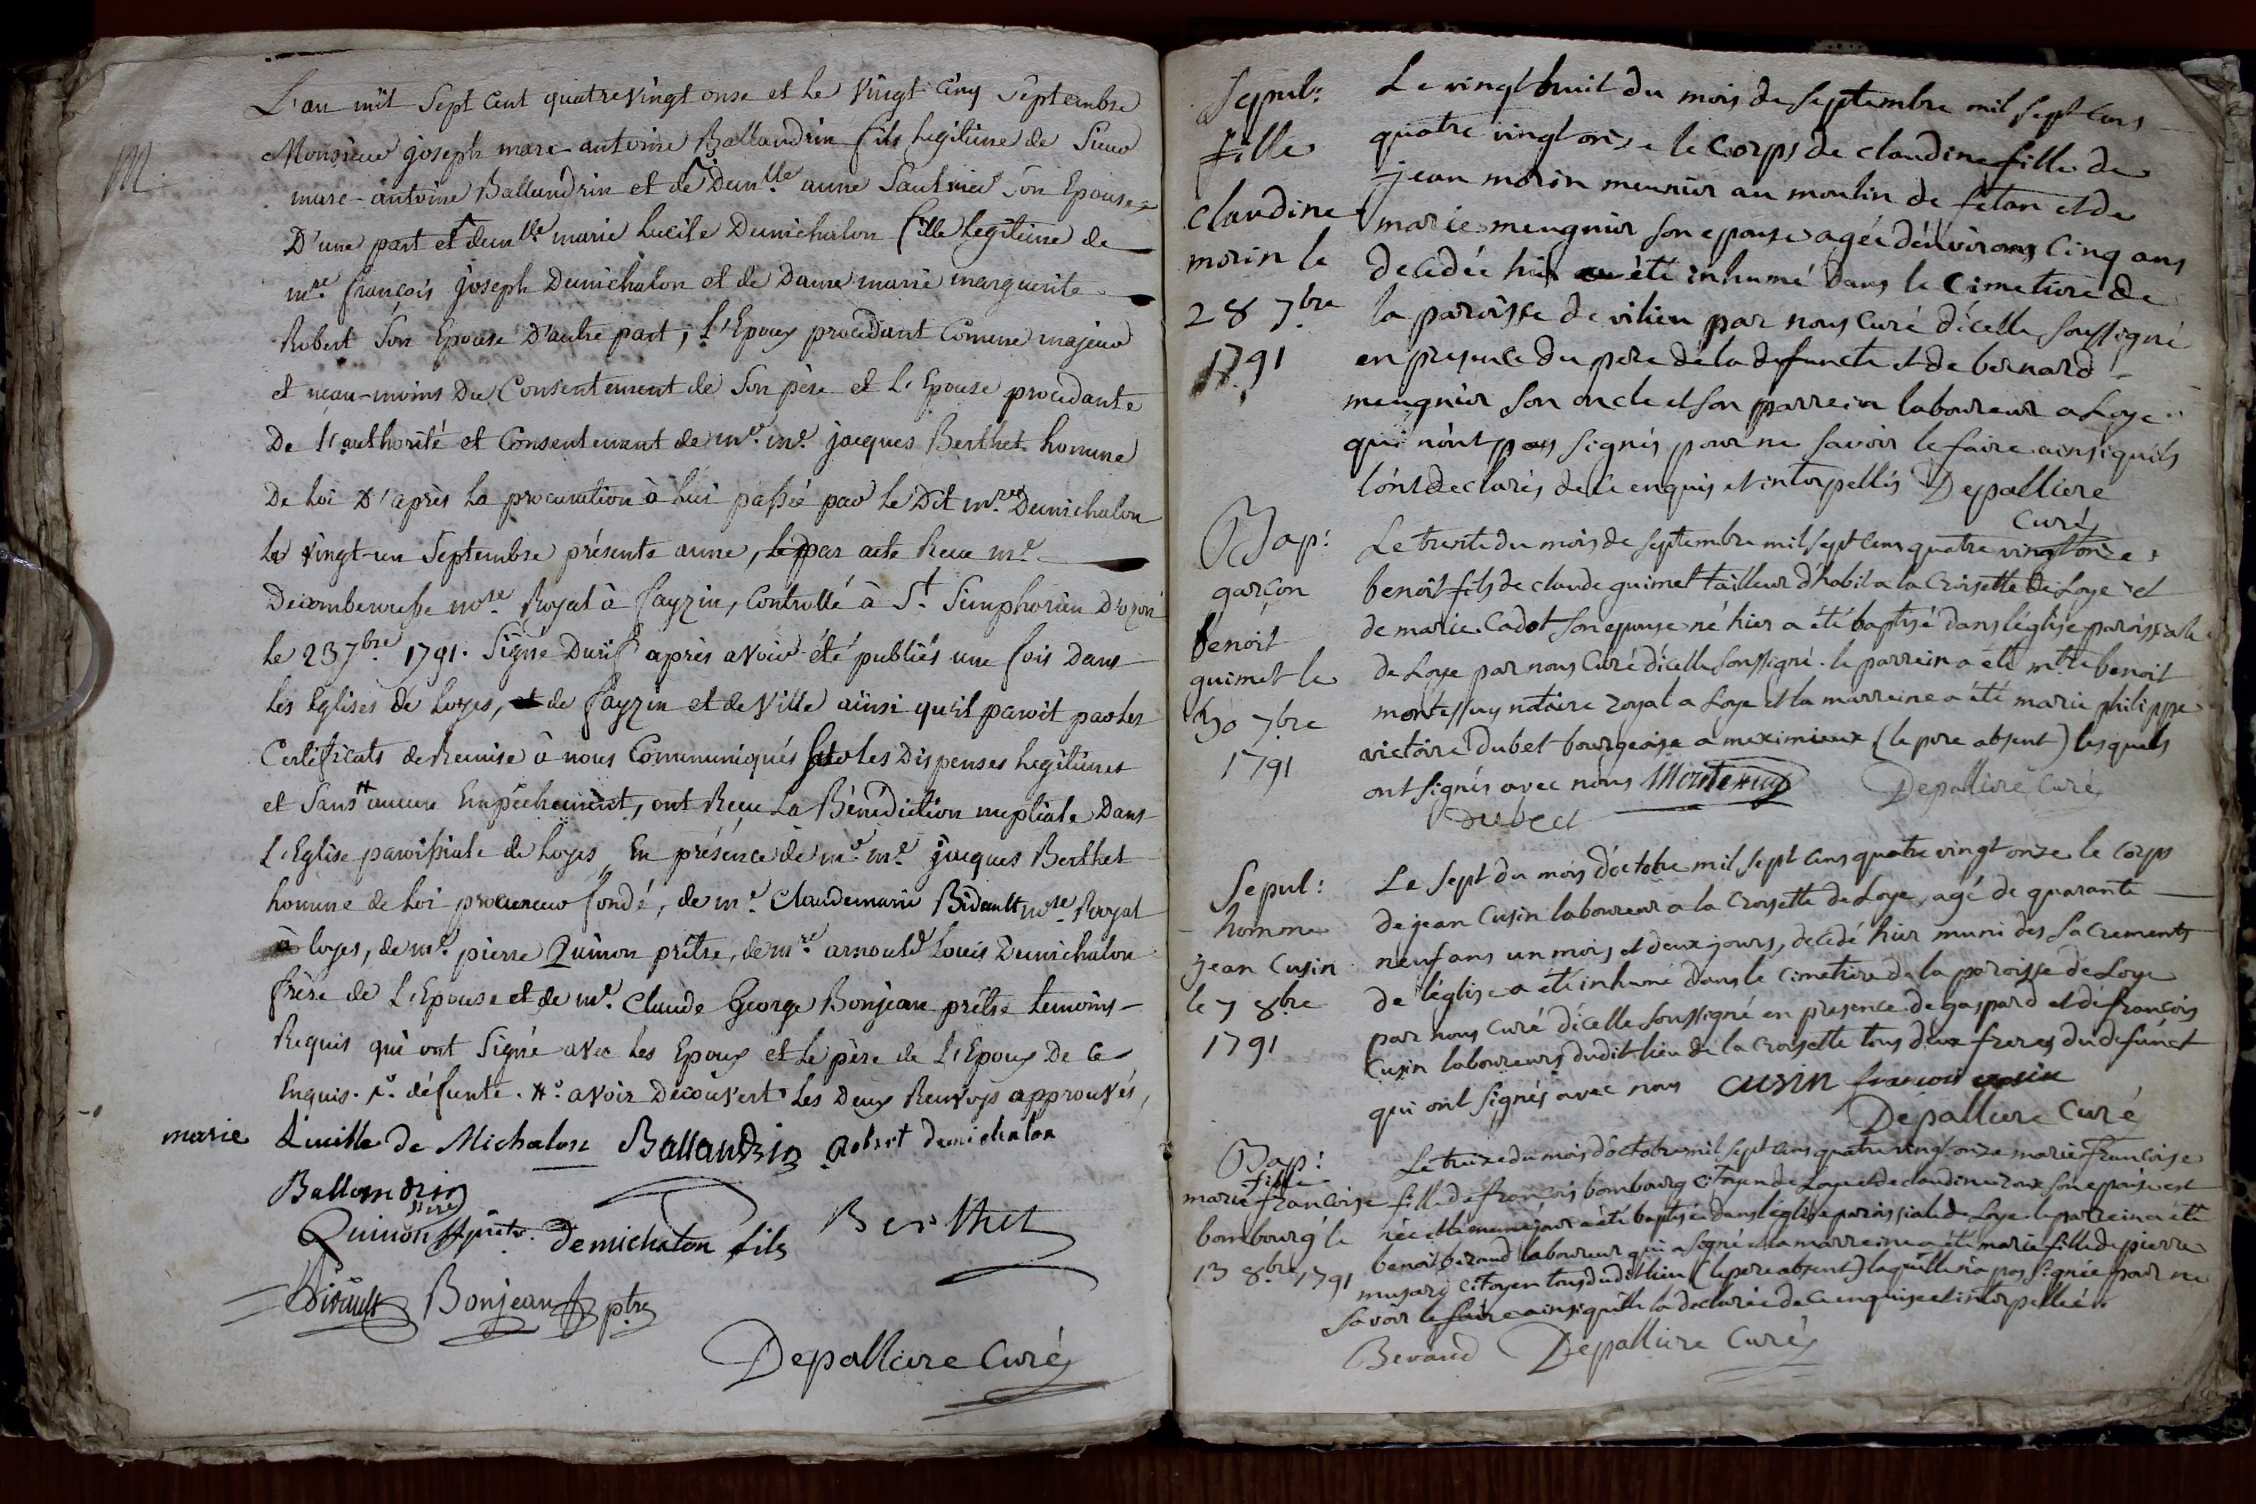 M.
L'an mil Sept Cent quatrevingt onse et le vingt cinq Septembre
Monsieur joseph marc antoine Ballandrin fils legitime de Sieur
marc-antoine Ballandrin et de Demlle anne Saulnier son Epouse
D'une part et demlle marie Lucile Demichalon fille legitime de
mre françois joseph Demichalon et de Dame marie marguerite
Robert Son Epouse D'autre part, L'Epoux procedant Comme majeur
et néan-moins Du Consentement de Son père et L'Epouse procedante
De l'authorité et Consentement de mr. me. jacques Berthet homme
De Loi D'après la procuration à lui passée par le Dit mre Demichalon
le vingt-un Septembre présente anne, par acte Recu me
Decombeurosse nore Royal à fayzin, Controllé à St. Simphorien D'ozon
le 23 7bre 1791. Signé Durif après avoir été publiés une fois Dans
les Eglises de Loyes, de fayzin et de Ville ainsi qu'il paroit par les
Certificats de Remise à nous Communiqués les Dispenses legitimes
et Sans aucun Empêchement, ont Reçu La Bénédiction nuptiale Dans
L'Eglise paroissiale de Loyes, En présence de mr. me. jacques Berthet
homme de Loi procureur fondé, de me. Claudemarie Bidault nore Royal
à loyes, de mr. pierre Quinon prêtre, de mre arnould Louis Demichalon
frère de L'Epouse et de mr. Claude George Bonjean prêtre temoins
Requis qui ont Signé avec les Epoux et le père de L'Epoux De ce
Enquis. défunte. avoir Découvert les Deux Renvoys approuvés,
marie Lucille de Michalon Ballandrin Robert demichalon
Ballandrin
père
Quinon prêtr. demichalon fils Berthet
Bidault Bonjean ptre
Depalliere Curé
Sepul:
fille
claudine
morin le
28 7bre
1791
Le vingt huit du mois de septembre mil sept cens
quatre vingt onze le corps de claudine fille de
jean morin meunier au moulin de fetan et de
marie meugnier son epouse agée d'environs Cinq ans
decedée hier a été inhumé dans le cimetiere de
la paroisse de vilieu par nous Curé d'icelle soussigné
en presence du pere de la defuncte et de bernard
meugnier son oncle et son parrein laboureur a Loye
qui n'ont pas signés pour ne savoir le faire ainsi quils
l'ont declarés de ce enquis et interpellés Depalliere
Curé
Bap:
garçon
benoit
guimet le
30 7bre
1791
Le trente du mois de septembre mil sept cens quatre vingt onze
benoit fils de claude guimet tailleur d'habit a la Croisette de Loye et
de marie Cadot son epouse né hier a été baptisé dans l'église paroissiale
de Loye par nous Curé d'icelle soussigné. le parrein a été mtre benoit
montessuy notaire royal a Loye et la marreine a été marie philippe
victoire Dubet bourgeoise a meximieux (le pere absent) lesquels
ont signés avec nous Montessuy Depalliere Curé
Dubet
Sepul:
homme
jean Cusin
le 7 8bre
1791
Le sept du mois d'octobre mil sept cens quatre vingt onze le corps
de jean Cusin laboureur a la Croisette de Loye, agé de quarante
neuf ans un mois et deux jours, decedé hier muni des sacrements
de l'église a été inhumé dans le cimetiere de la paroisse de Loye
par nous Curé d'icelle soussigné en presence de gaspard et de françois
Cusin laboureurs dudit lieu de la Croisette tous deux freres du defunct
qui ont signés avec nous cusin francois cusin
Depalliere Curé
Bap:
fille
marie françoise
bombourg le
13 8bre 1791
Le treize du mois d'octobre mil sept cens quatre vingt onze marie françoise
fille de françois bombourg citoyen de Loye et de claudine roux son epouse est
née et le meme jour a été baptisée dans l'église paroissiale de Loye le parrein a été
benoit beraud laboureur qui a signé et la marreine a été marie fille de pierre
musary citoyen tous dudit lieu (le pere absent) laquelle n'a pas signée pour ne
savoir le faire ainsi quelle la declarée de ce enquise et interpellée
Beraud Depalliere Curé